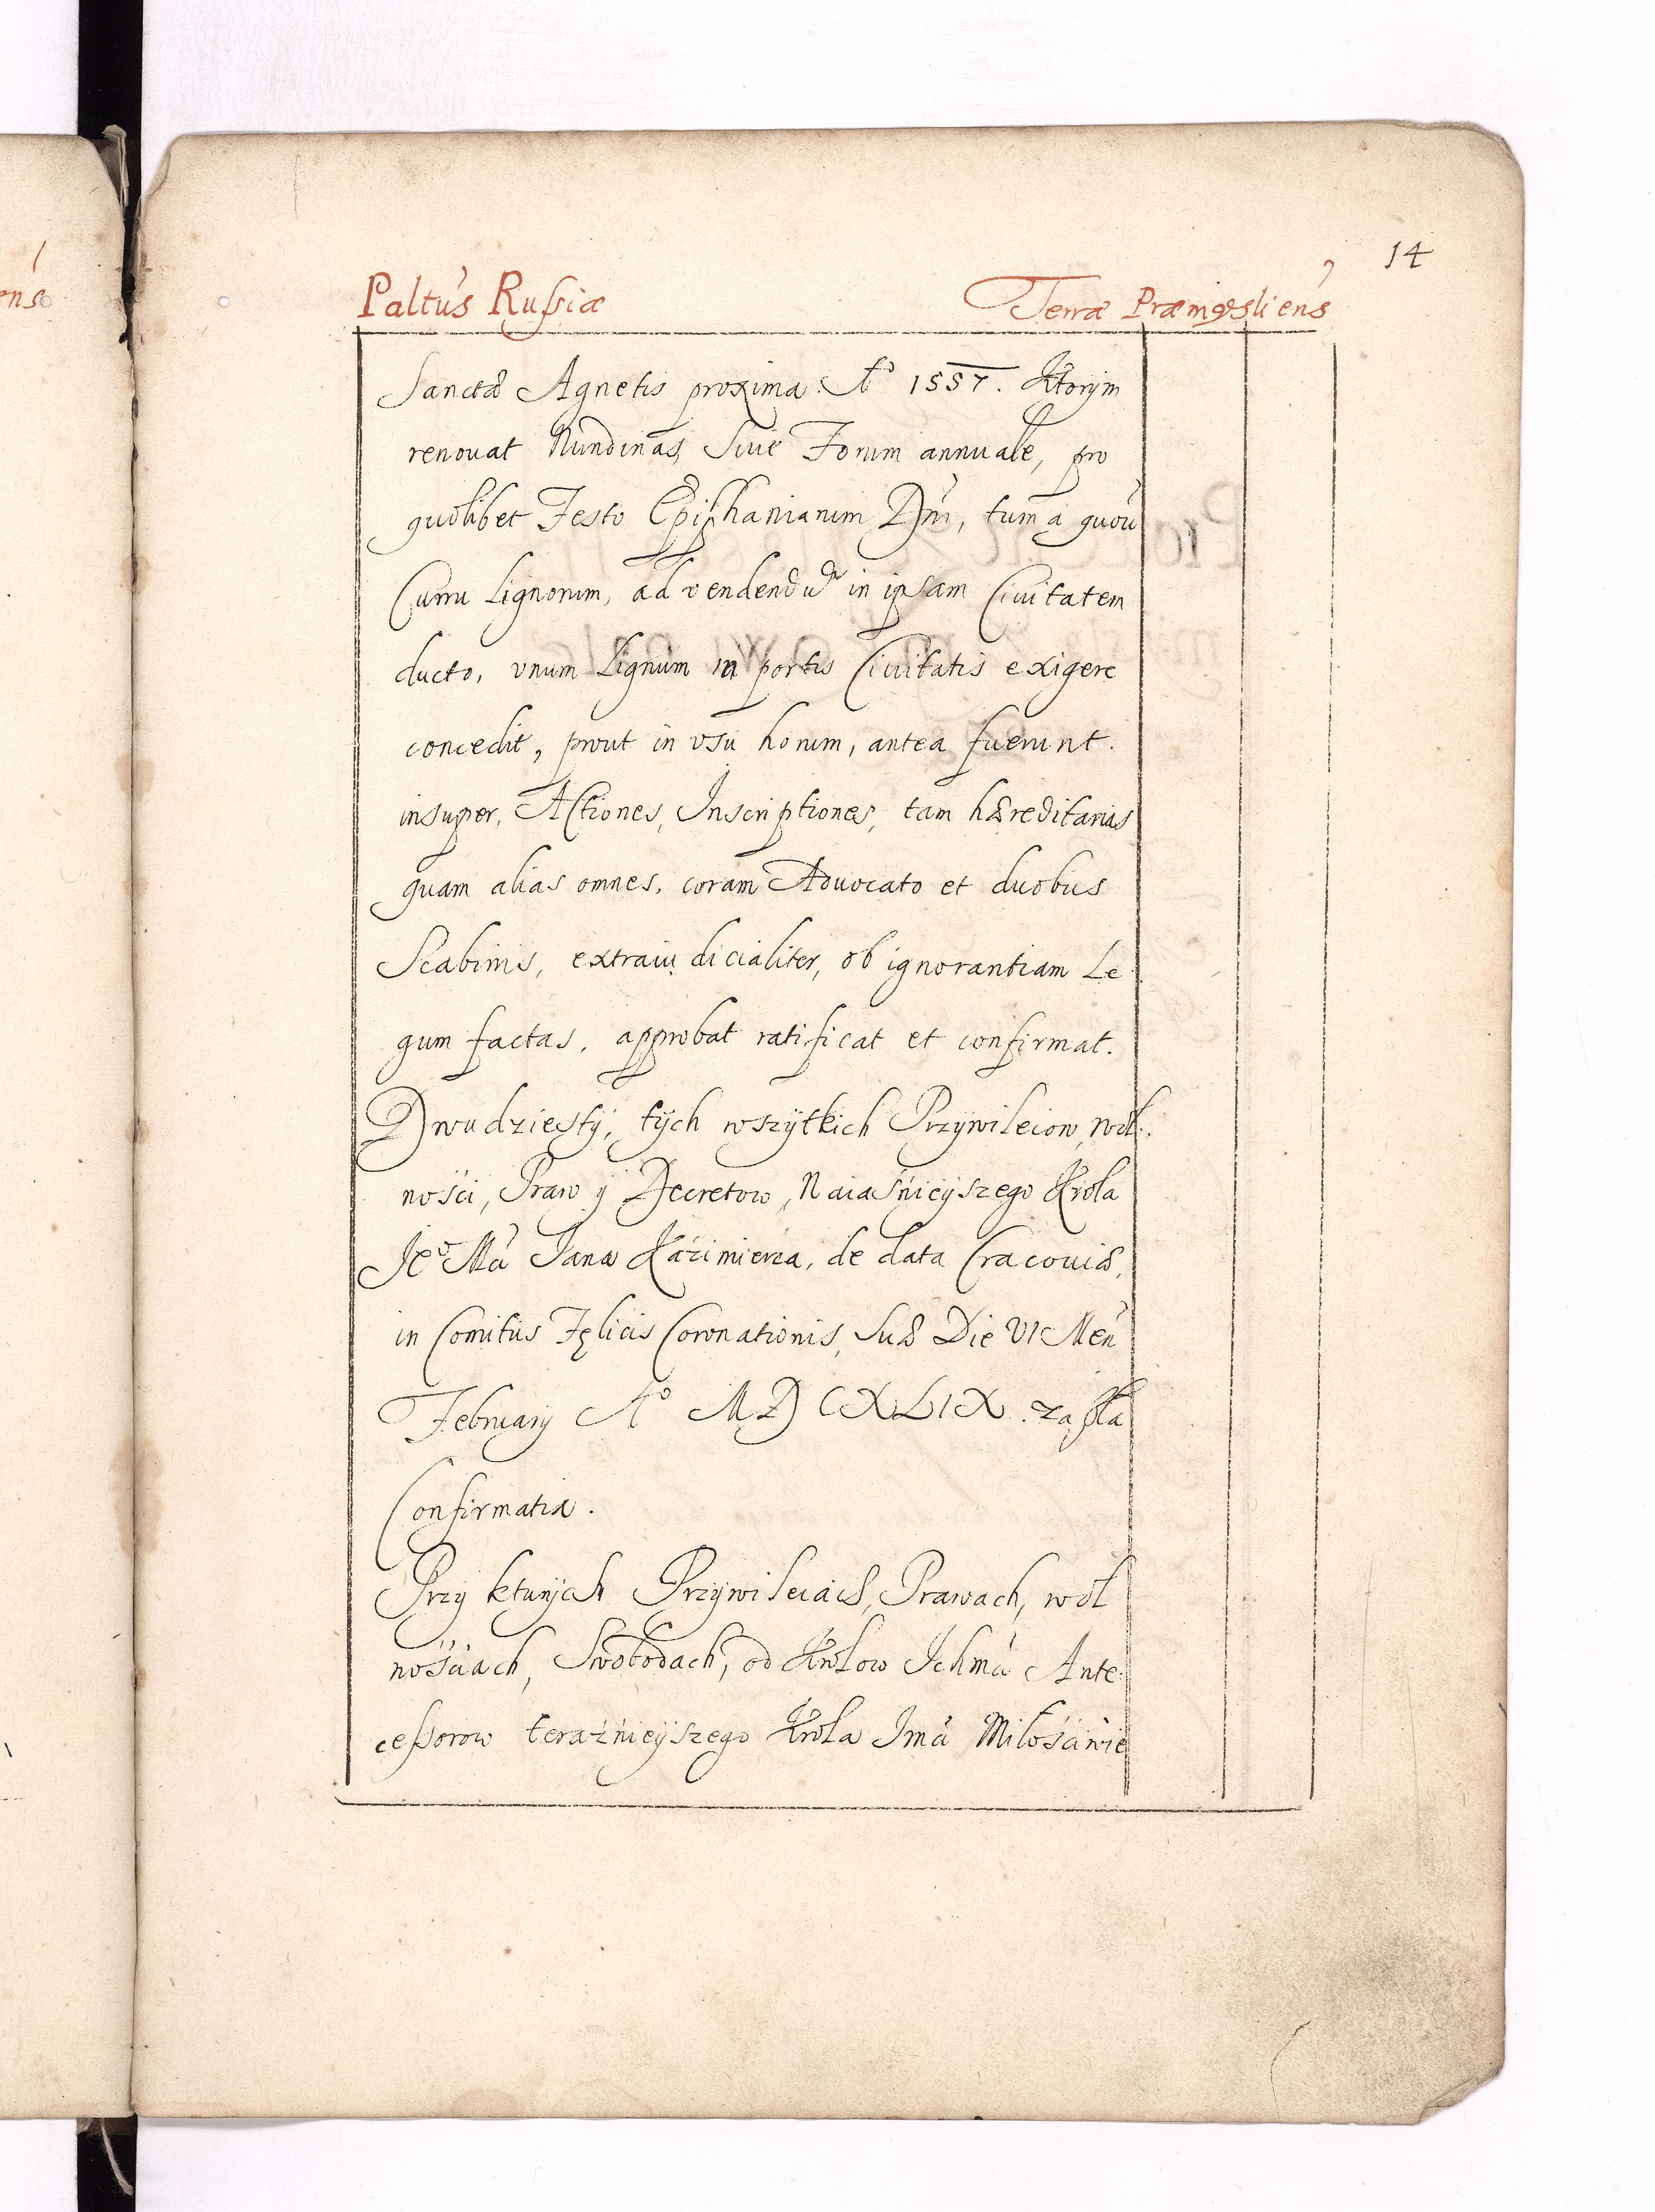 14
Paltus Russiæ Terræ Præmysliens
Sanctæ Agnetis proxima A° 1557. Ktorÿm
renouat Nundinas, Siue Forum annuale, pro
quolibet Festo Epiphaniarum Dni, tum a quou
Curru Lignorum, ad vendendu in ipsam Ciuitatem
ducto, vnum Lignum in portis Ciuitatis exigere
concedit, prout in vsu horum, antea fuerunt.
insuper, Actiones, Inscriptiones, tam hæreditarias
quam alias omnes, coram Aduocato et duobus
Scabinis, extraiudicialiter, ob ignorantiam Le
gum factas, approbat ratificat et confirmat.
Dwudziestÿ, tÿch wszÿtkich Przÿwileiow, wol:
nosci, Praw ÿ Decretow, Naiaśnieÿszego Krola
Je° Mci Jana Kaźimierza, de data Cracouiæ,
in Comitiis Fęlicis Coronationis, Suæ Die VI Men
Februarÿ A° MDCXLIX. zaszła
Confirmatia.
Przÿ kturÿch Przÿwileiach, Prawach, wol
nościach, Swobodach, od Krolow Ichmci Ante:
cessorow teraźnieÿszego Krola Jmci Miłościwie